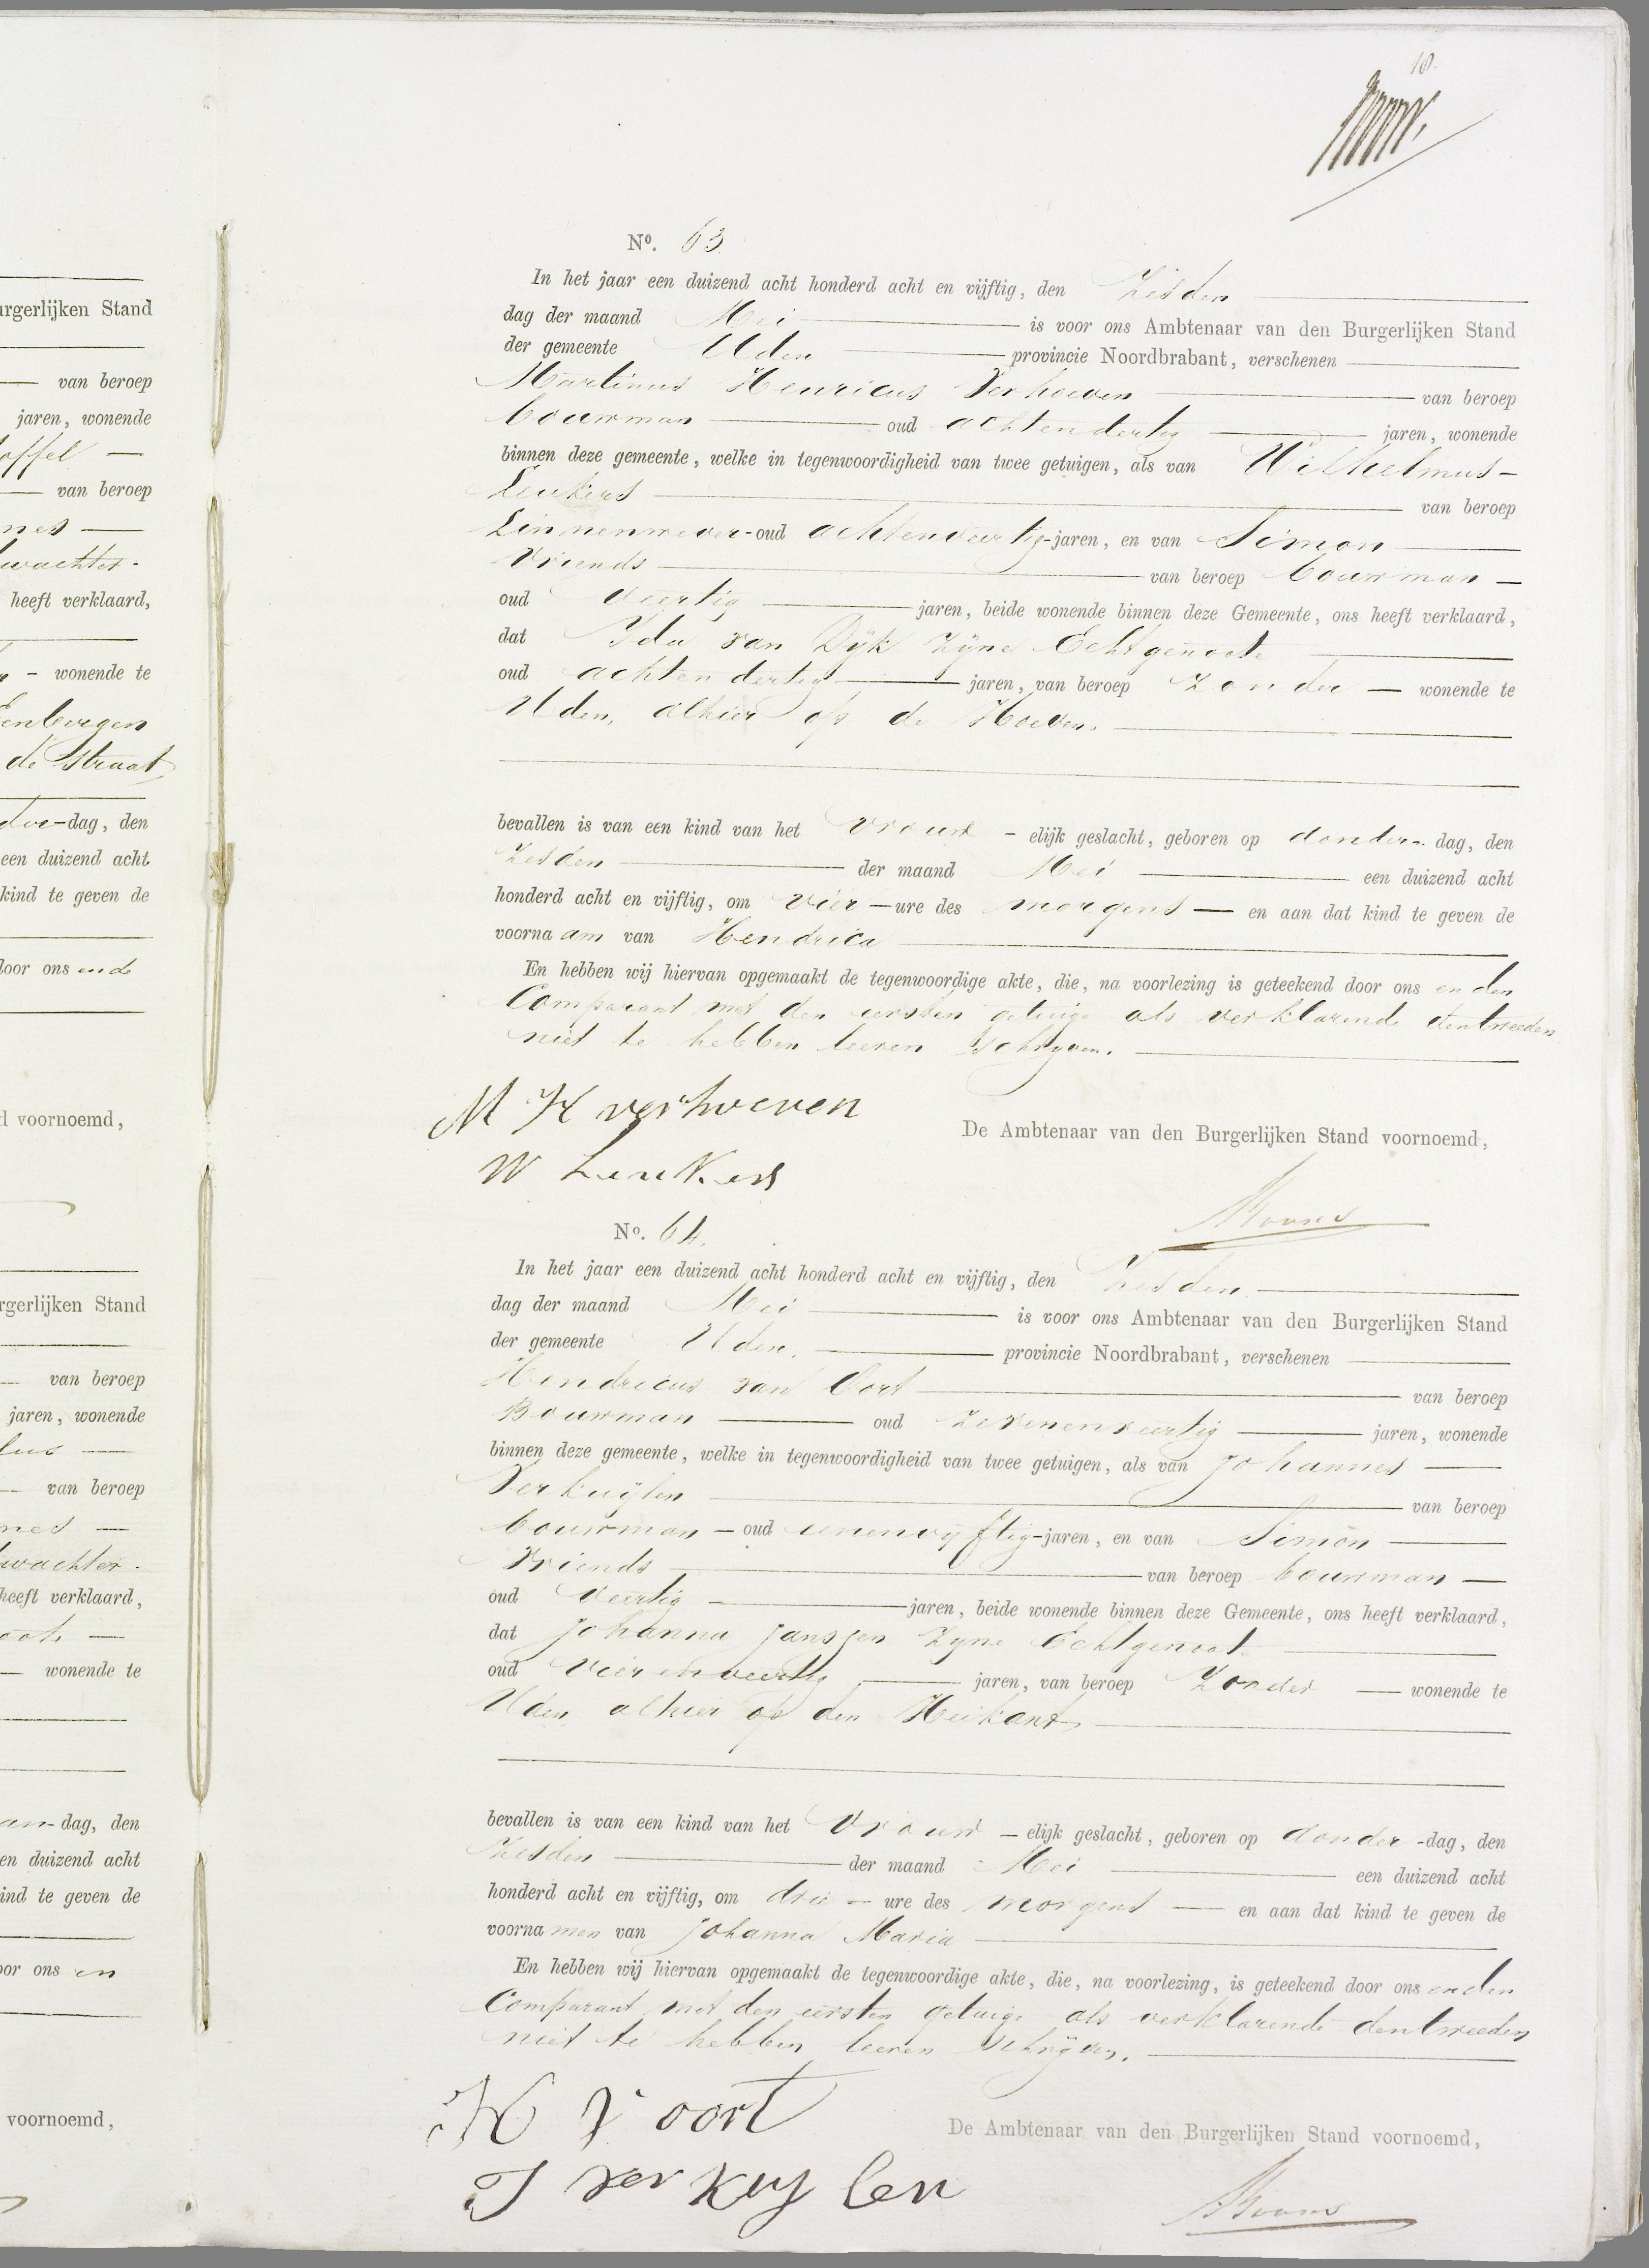 urgerlijken Stand
van beroep
jaren, wonende
offel —
van beroep
nes —
wachter.
heeft verklaard,
— wonende te
enbergen
de Straat
dag, den
een duizend acht
kind te geven de
door ons en de
d voornoemd,
rgerlijken Stand
— van beroep
jaren, wonende
lus —
— van beroep
nes —
wachter.
heeft verklaard,
oote —
— wonende te
an-dag, den
en duizend acht
ind te geven de
oor ons en
voornoemd,
18.
No. 63.
In het jaar een duizend acht honderd acht en vijftig, den Zesden
dag der maand Mei — is voor ons Ambtenaar van den Burgerlijken Stand
der gemeente Uden — provincie Noordbrabant, verschenen —
Martinus Henricus Verhoeven — van beroep
bouwman — oud achtendertig — jaren, wonende
binnen deze gemeente, welke in tegenwoordigheid van twee getuigen, als van Wilhelmus —
Leukers — van beroep
Linnenwever - oud achtenveertig - jaren, en van Simon —
Vriends — van beroep bouwman —
oud Veertig — jaren, beide wonende binnen deze Gemeente, ons heeft verklaard,
dat Ida van Dijk zijne Echtgenoote —
oud achtendertig — jaren, van beroep zonder — wonende te
Uden, alhier op de Hoeven. —
bevallen is van een kind van het vrouw - elijk geslacht, geboren op donder - dag, den
zesden — der maand Mei — een duizend acht
honderd acht en vijftig, om vier — ure des morgens — en aan dat kind te geven de
voornaam van Hendrica —
En hebben wij hiervan opgemaakt de tegenwoordige akte, die, na voorlezing is geteekend door ons en den
Comparant met den eersten getuige als verklarende den tweeden
niet te hebben leeren schrijven. —
M H verhoeven
De Ambtenaar van den Burgerlijken Stand voornoemd,
W Leukers
No. 64.
In het jaar een duizend acht honderd acht en vijftig, den Zesden —
dag der maand Mei — is voor ons Ambtenaar van den Burgerlijken Stand
der gemeente Uden. — provincie Noordbrabant, verschenen —
Hendricus van Oort — van beroep
Bouwman — oud zevenenveertig — jaren, wonende
binnen deze gemeente, welke in tegenwoordigheid van twee getuigen, als van Johannes —
Verkuijlen — van beroep
bouwman — oud eenenvijftig - jaren, en van Simon —
Vriends — van beroep bouwman —
oud Veertig — jaren, beide wonende binnen deze Gemeente, ons heeft verklaard,
dat Johanna Janssen zijne Echtgenoot —
oud Vierenveertig — jaren, van beroep Zonder — wonende te
Uden alhier op den Heikant —
bevallen is van een kind van het Vrouw — elijk geslacht, geboren op donder - dag, den
Zesden — der maand Mei — een duizend acht
honderd acht en vijftig, om drie — ure des morgens — en aan dat kind te geven de
voornamen van Johanna Maria —
En hebben wij hiervan opgemaakt de tegenwoordige akte, die, na voorlezing, is geteekend door ons en den
Comparant met den eersten getuige als verklarende den tweeden
niet te hebben leeren schrijven. —
H V oort
De Ambtenaar van den Burgerlijken Stand voornoemd,
J verkuylen